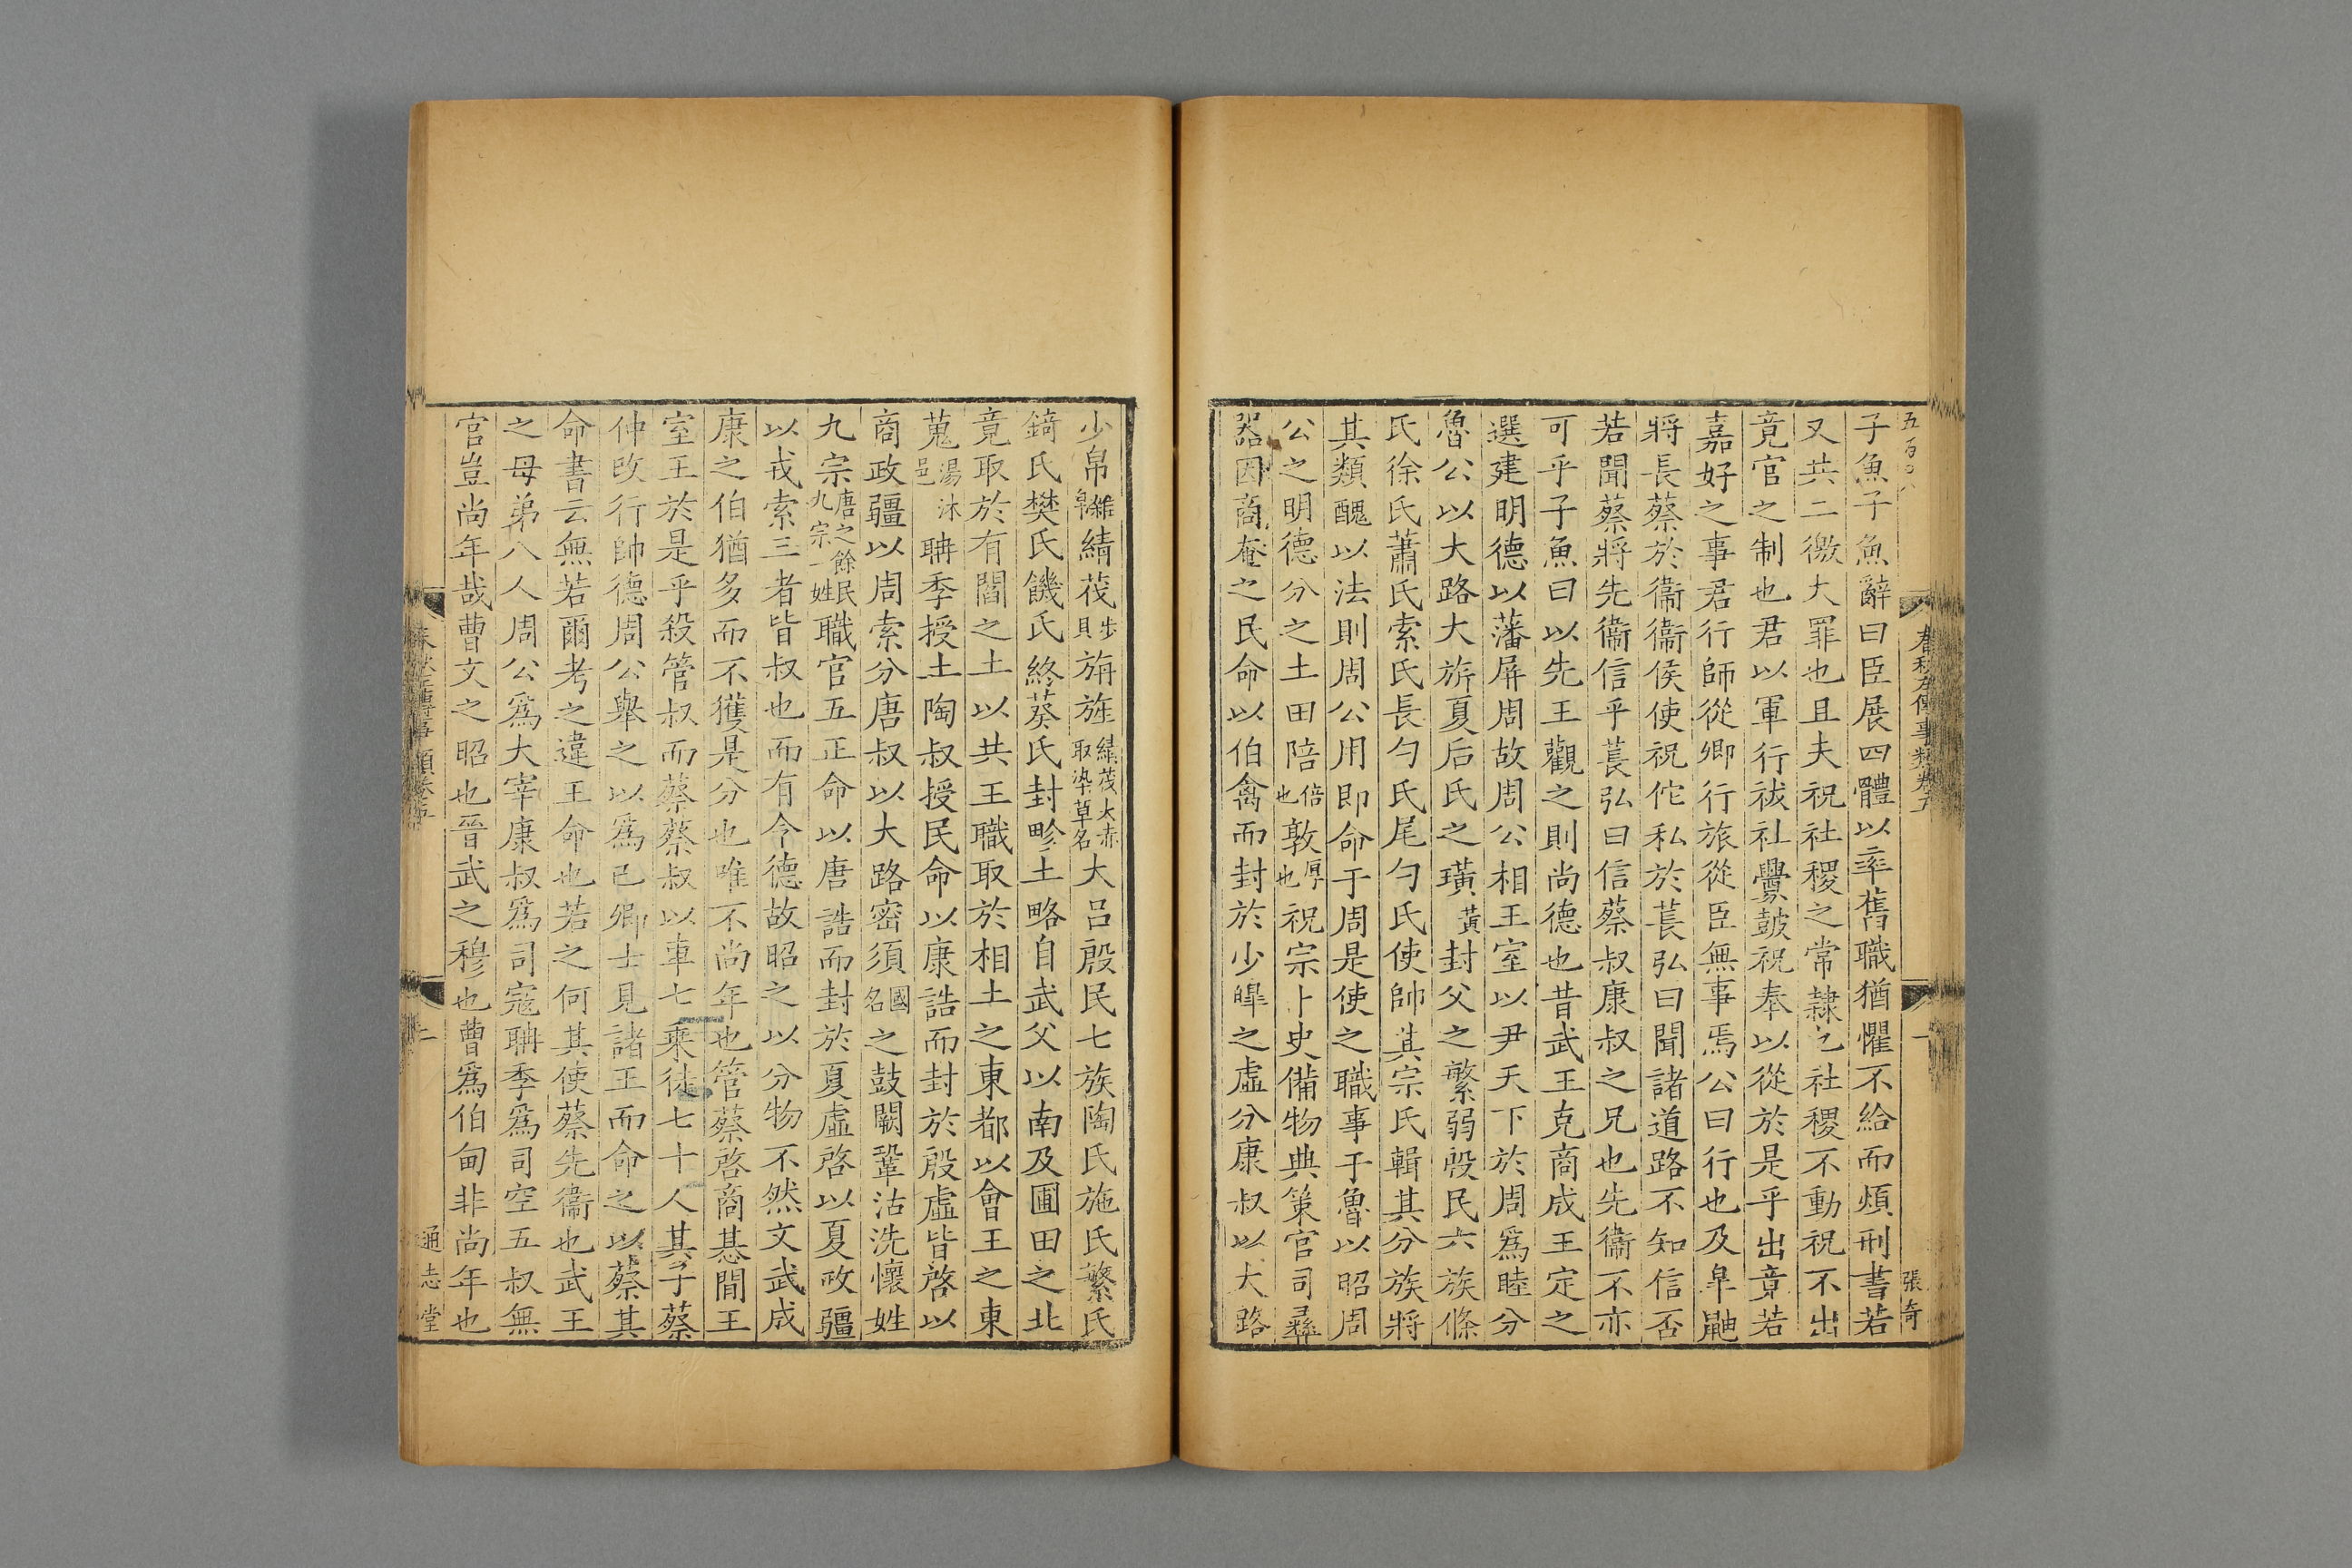 五百〇八
春秋左傳事類卷五
一
張奇
子魚子魚辭曰臣展四體以率舊職猶懼不給而煩刑書若
又共二徼大罪也且夫祝社稷之常隸也社稷不動祝不出
竟官之制也君以軍行祓社釁鼓祝奉以從於是乎出竟若
嘉好之事君行師從卿行旅從臣無事焉公曰行也及臯鼬
將長蔡於衞衞侯使祝佗私於萇弘曰聞諸道路不知信否
若聞蔡將先衞信乎萇弘曰信蔡叔康叔之兄也先衞不亦
可乎子魚曰以先王觀之則尚德也昔武王克商成王定之
選建明德以藩屏周故周公相王室以尹天下於周爲睦分
魯公以大路大旂夏后氏之璜黃封父之繁弱殷民六族條
氏徐氏蕭氏索氏長勺氏尾勺氏使帥其宗氏輯其分族將
其類醜以法則周公用即命于周是使之職事于魯以昭周
公之明德分之土田陪倍也敦厚也祝宗卜史備物典策官司彞
器因商奄之民命以伯禽而封於少皥之虛分康叔以大路
少帛雜帛綪茷步貝旃旌綪茷大赤取染草名大呂殷民七族陶氏施氏繁氏
錡氏樊氏饑氏終葵氏封畛土略自武父以南及圃田之北
竟取於有閻之土以共王職取於相土之東都以會王之東
蒐湯沐邑聃季授土陶叔授民命以康誥而封於殷虛皆啓以
商政疆以周索分唐叔以大路密須國名之鼓闕鞏沽洗懷姓
九宗唐之餘民九宗一姓職官五正命以唐誥而封於夏虛啓以夏政疆
以戎索三者皆叔也而有令德故昭之以分物不然文武成
康之伯猶多而不獲是分也唯不尚年也管蔡啓商惎間王
室王於是乎殺管叔而蔡蔡叔以車七乘徒七十人其子蔡
仲改行帥德周公舉之以爲己卿士見諸王而命之以蔡其
命書云無若爾考之違王命也若之何其使蔡先衞也武王
之母弟八人周公爲大宰康叔爲司寇聃季爲司空五叔無
官豈尚年哉曹文之昭也晉武之穆也曹爲伯甸非尚年也
二
通志堂